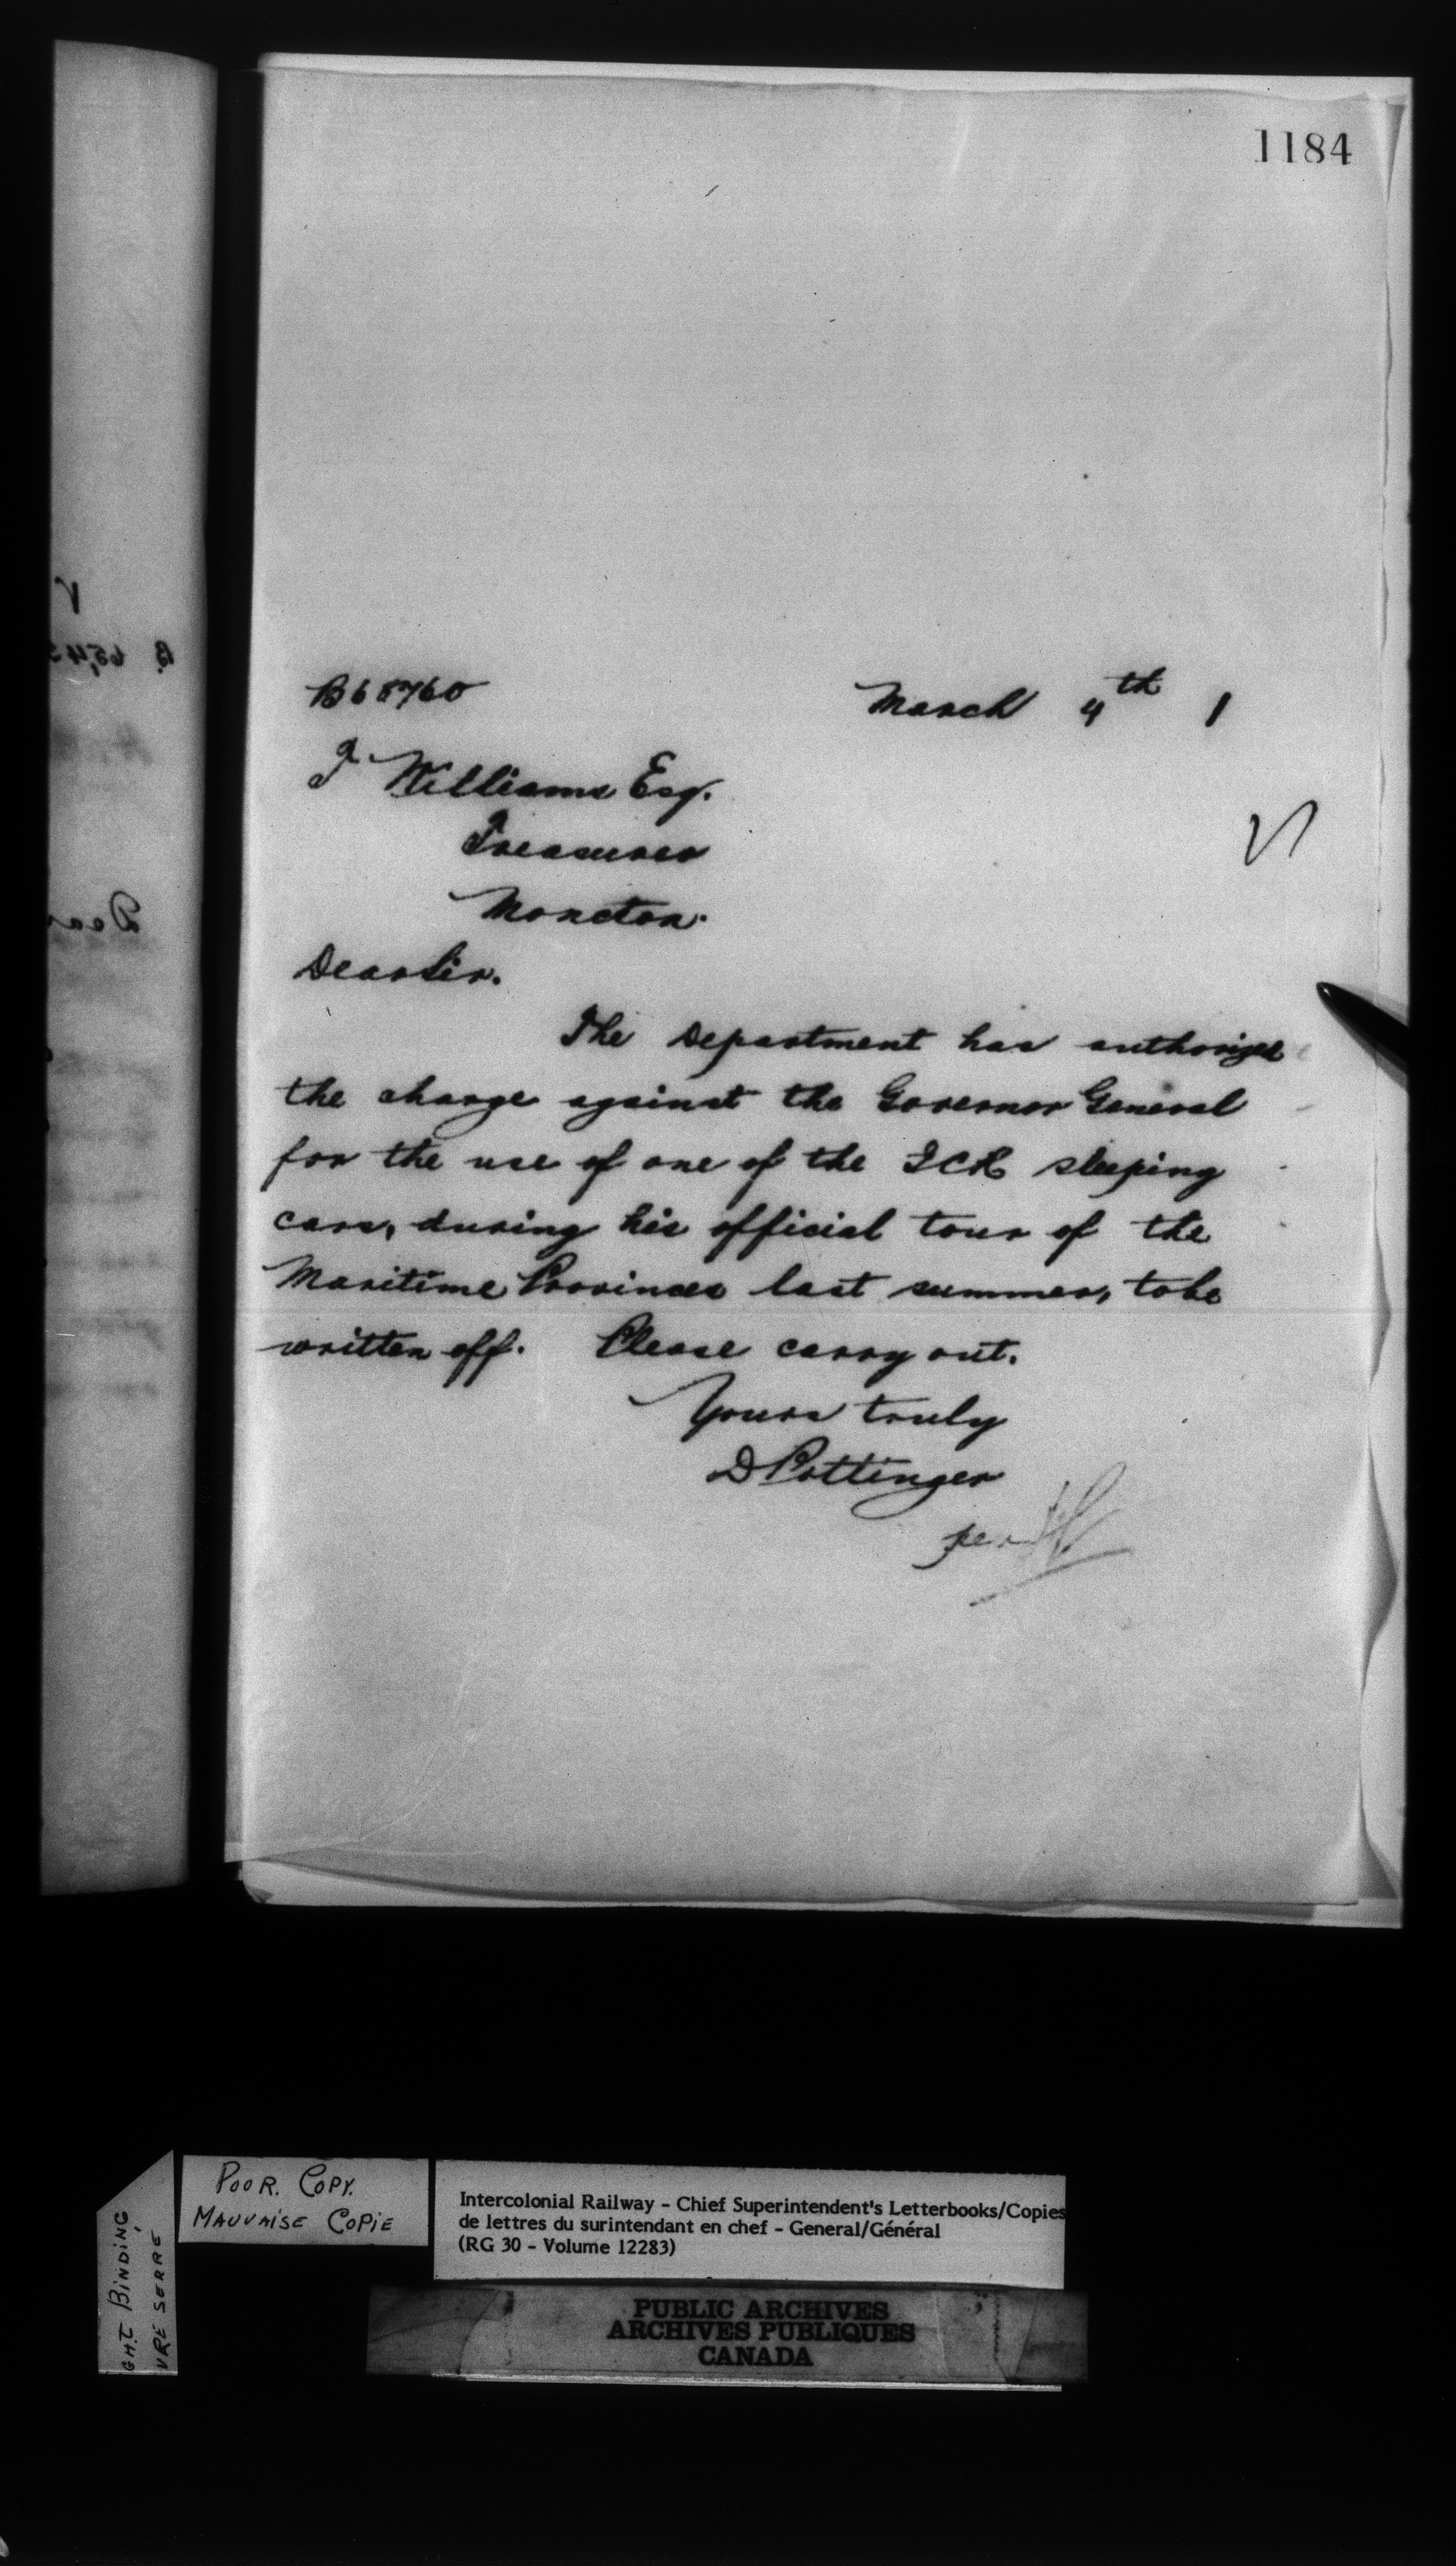 1184
B68760 March 4th 1
T Williams Esq.
Treasurer
Moncton.
Dear Sir.
The Department has authorized
the charge against the Governor General
for the use of one of the ICR sleeping
cars, during his official tour of the
Maritime Provinces last summer, to be
written off. Please carry out.
Yours truly
D Pottinger
per
POOR. COPY.
MAUVAISE COPIE
GHT BINDING
VRE SERRE
Intercolonial Railway - Chief Superintendent's Letterbooks/Copies
de lettres du surintendant en chef - General/Général
(RG 30 - Volume 12283)
PUBLIC ARCHIVES
ARCHIVES PUBLIQUES
CANADA